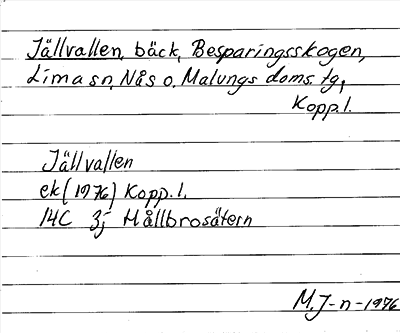 Jällvallen, bäck, Besparingsskogen,
Lima sn, Nås o. Malungs doms tg,
Kopp. l.
Jällvallen
ek (1976) Kopp. l.
14C 3j Hållbrosätern
M. J-n-1976